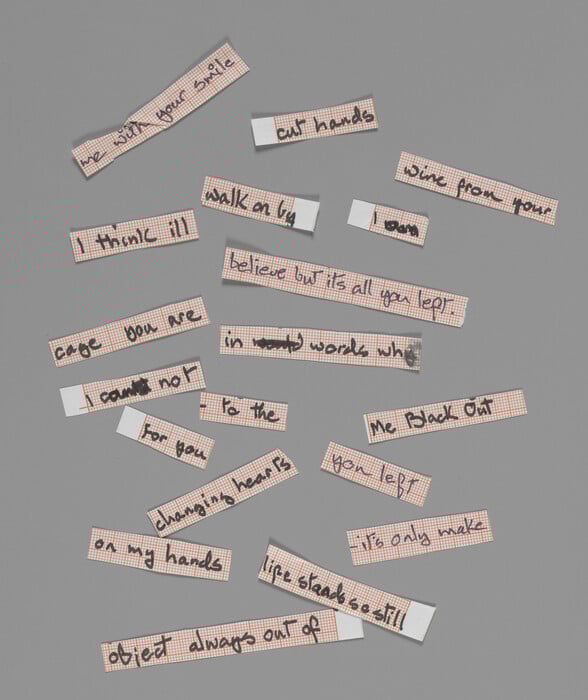 me with your smile
cut hands
wine from your
walk on by
I
I think ill
believe but its all you left.
cage you are
in words who
I not
- to the
me Black Out
for you
you left
changing hearts
-it's only make
on my hands
life stands so still
object always out of